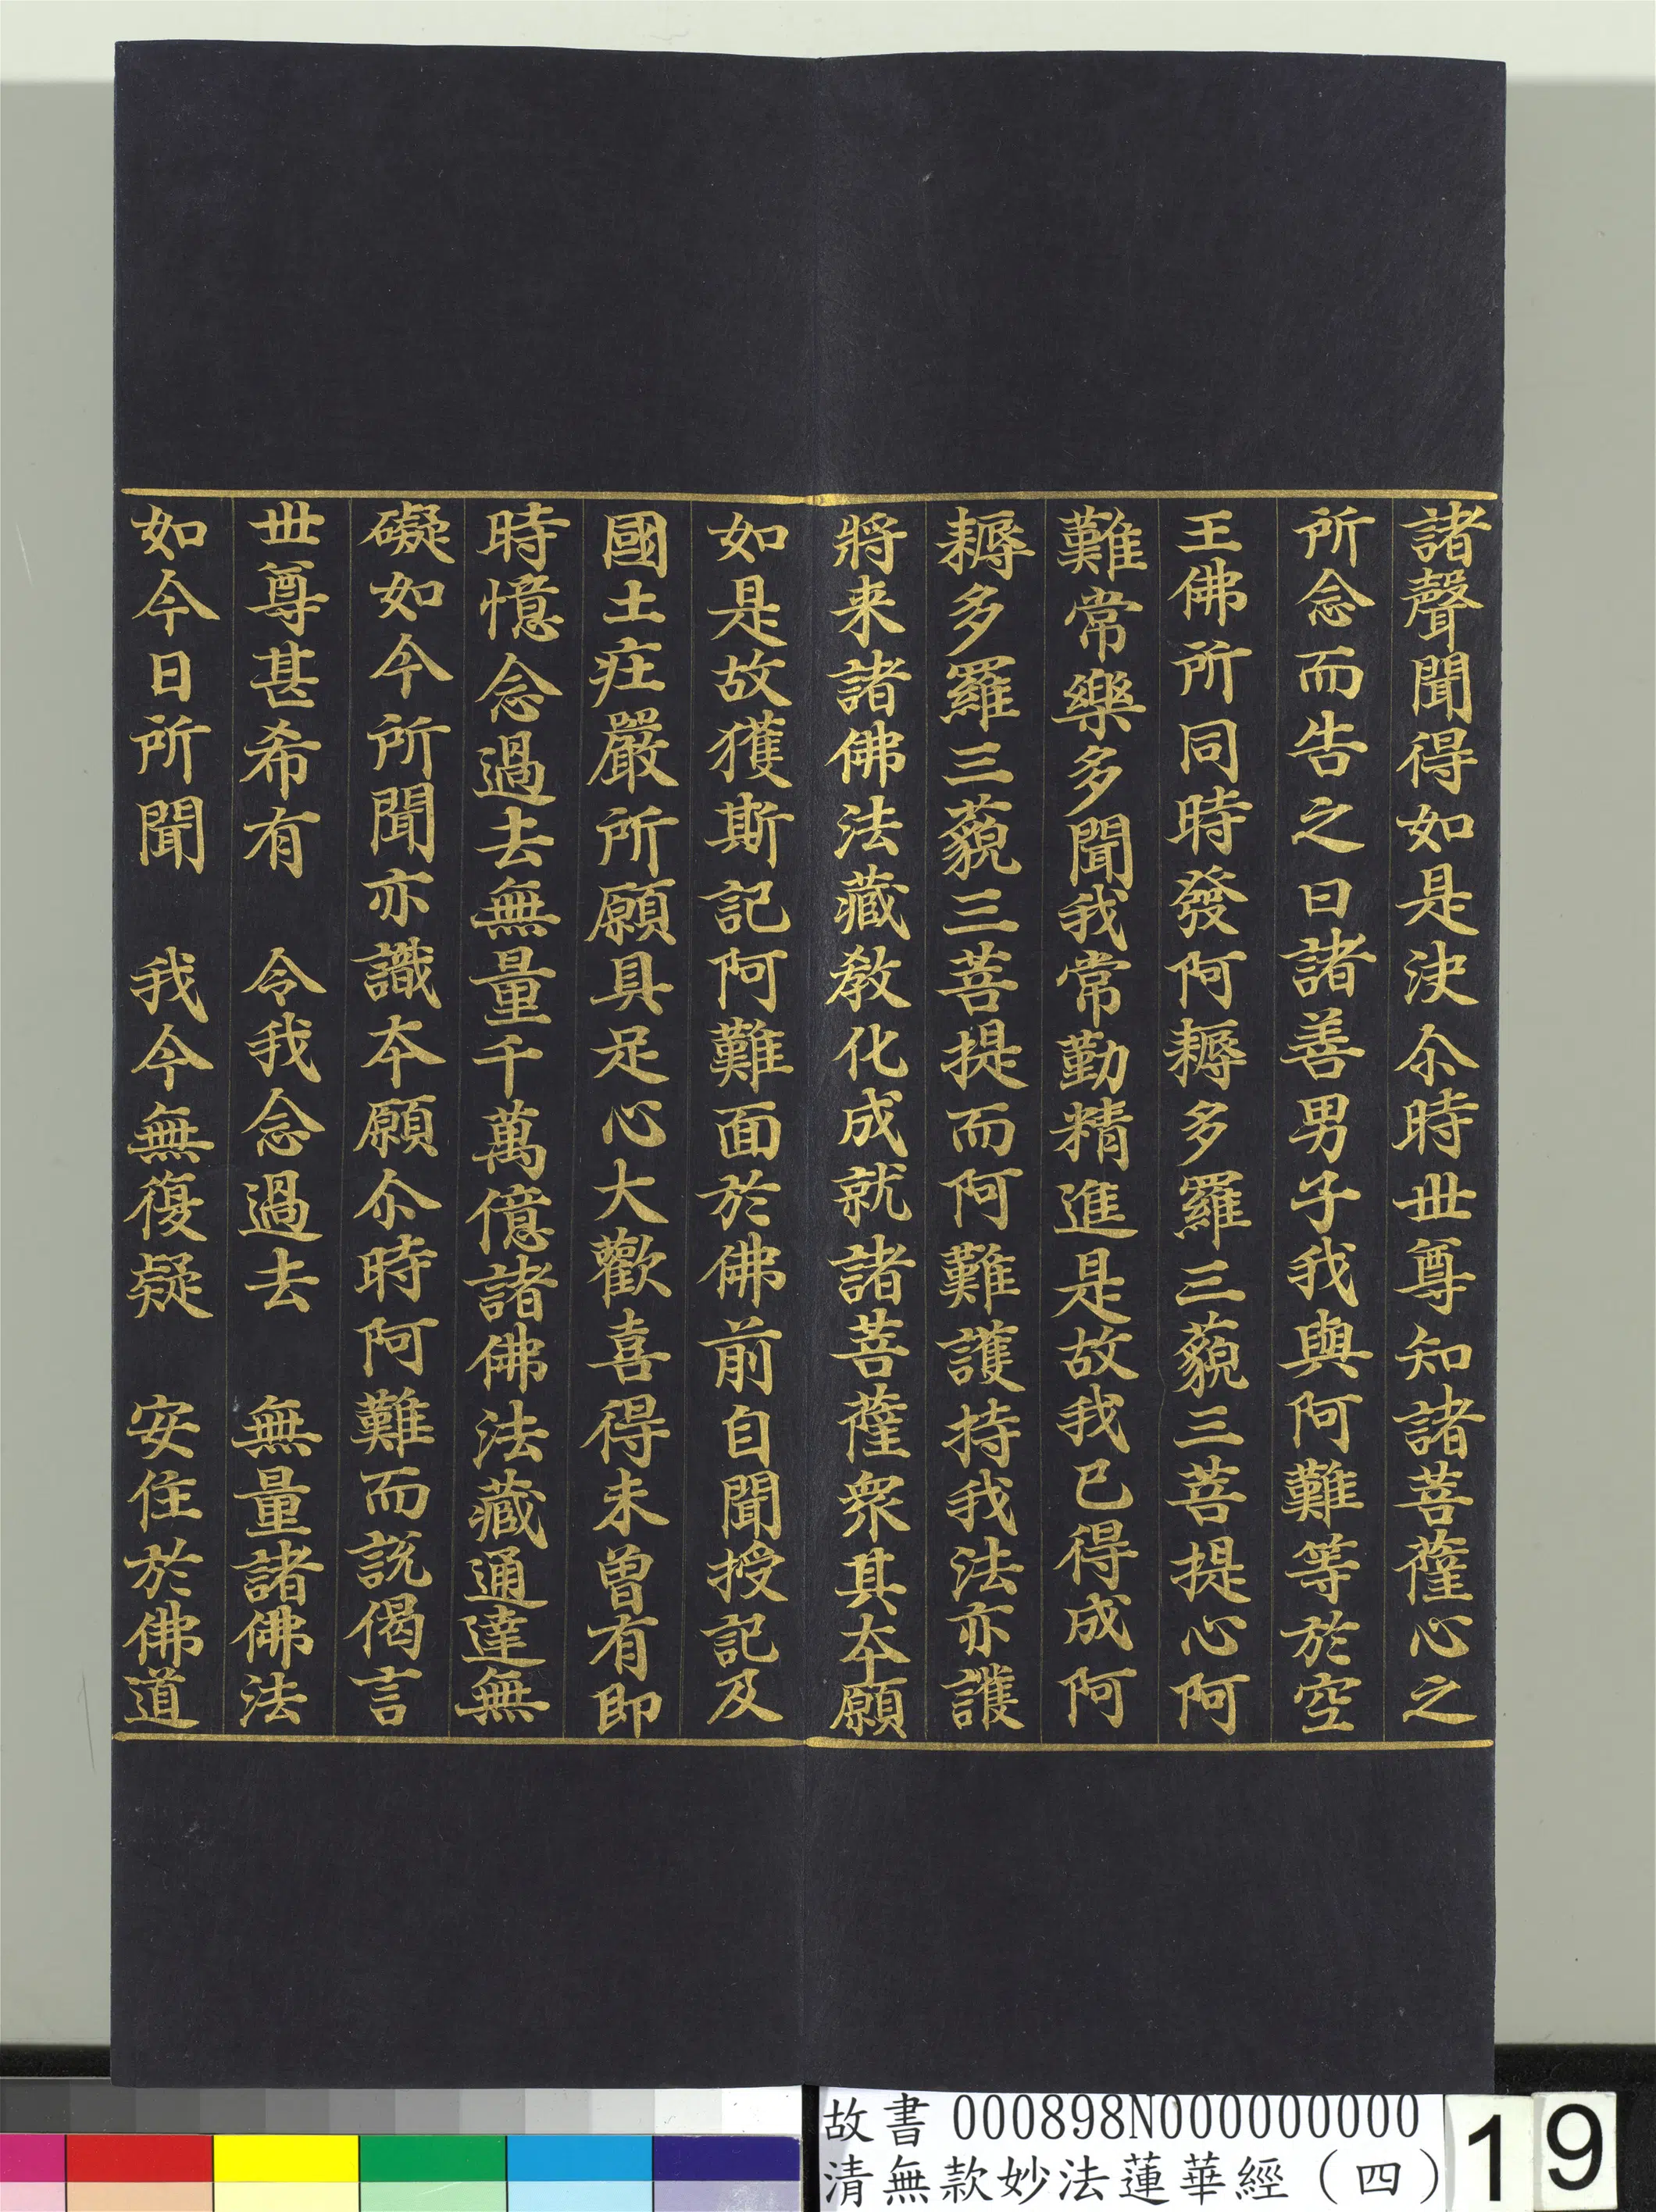 諸聲聞得如是決尒時丗尊知諸菩薩心之
所念而告之曰諸善男子我與阿難等於空
王佛所同時發阿耨多羅三藐三菩提心阿
難常樂多聞我常勤精進是故我已得成阿
耨多羅三藐三菩提而阿難護持我法亦護
將来諸佛法藏教化成就諸菩薩衆其夲願
如是故獲斯記阿難面於佛前自聞授記及
國土疘嚴所願具足心大歡喜得未曾有即
時憶念過去無量千萬億諸佛法藏通達無
礙如今所聞亦識夲願尒時阿難而説偈言
丗尊甚希有　令我念過去　無量諸佛法
如今日所聞　我今無復疑　安住於佛道
故書 000898N000000000
清無款妙法蓮華經（四）
19